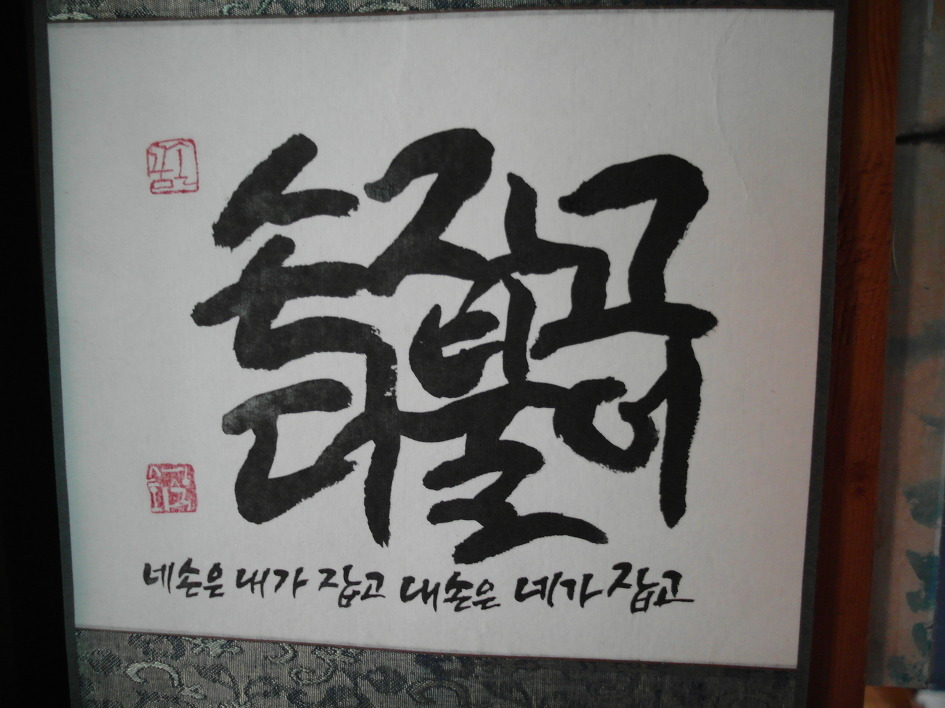 손잡고
더불어
네손은 내가 잡고 내손은 네가 잡고